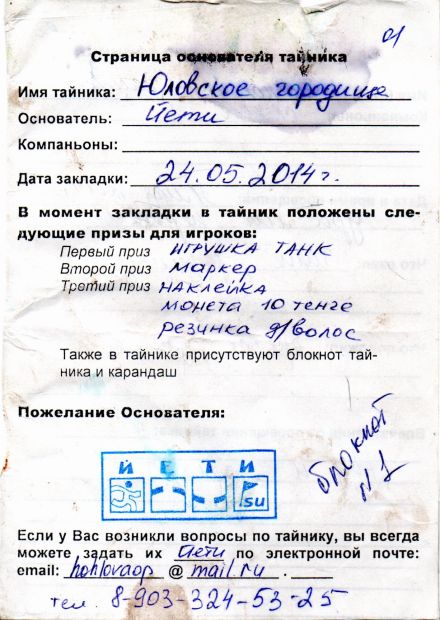 01
Страница основателя тайника
Имя тайника: Юловское городище
Основатель: Йети
Компаньоны:
Дата закладки: 24.05.2014 г.
В момент закладки в тайник положены сле-
дующие призы для игроков:
Первый приз ИГРУШКА ТАНК
Второй приз маркер
Третий приз НАКЛЕЙКА
монета 10 тенге
резинка д/волос
Также в тайнике присутствуют блокнот тай-
ника и карандаш
Пожелание Основателя:
блокнот
№1
ЙЕТИ
su
Если у Вас возникли вопросы по тайнику, вы всегда
можете задать их Йети по электронной почте:
email: hohlovaop @ mail.ru .
тел. 8-903-324-53-25